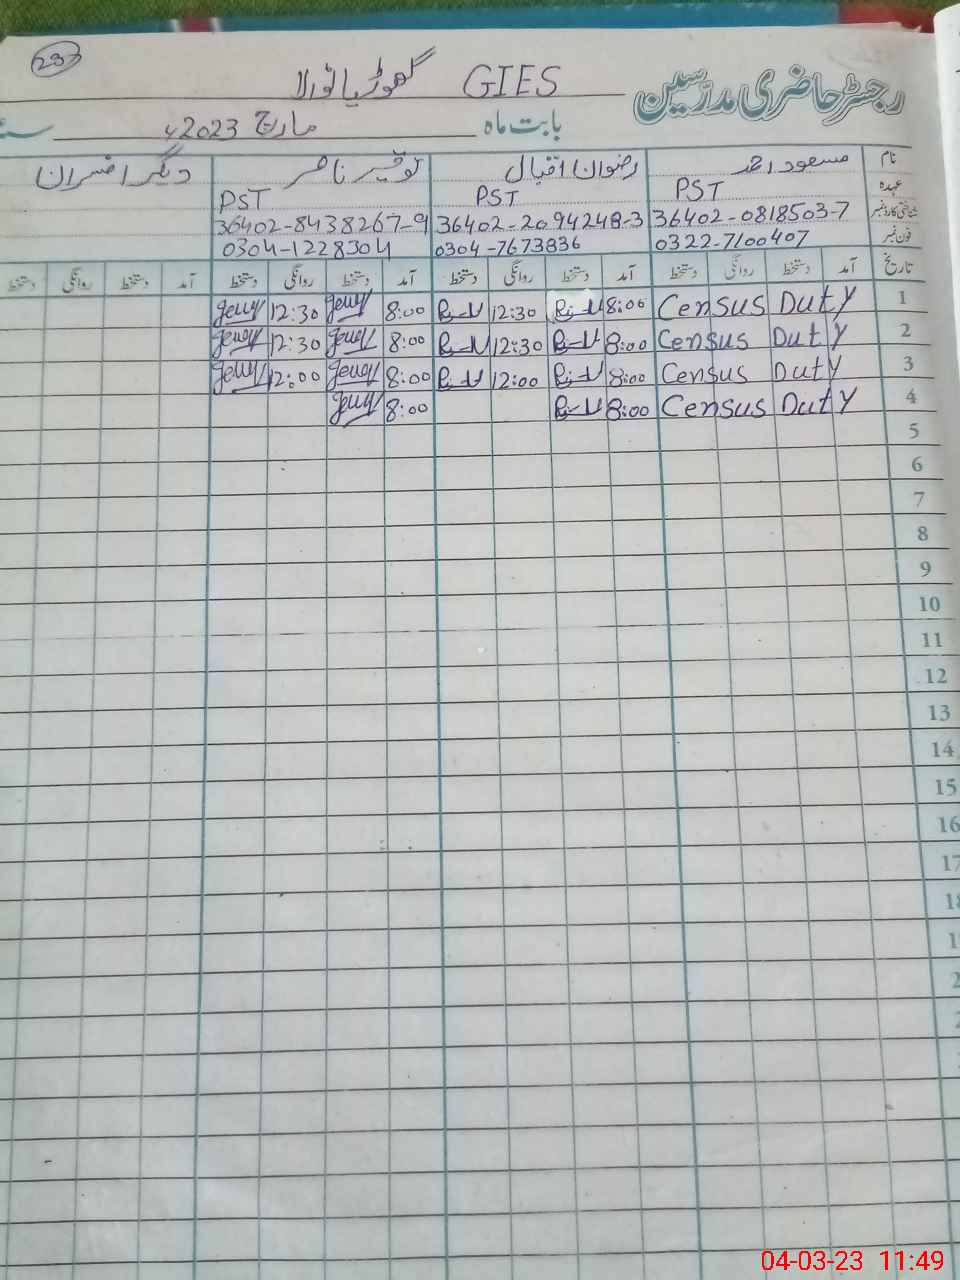 233
GIES گھوڑیانوالا
رجسٹر حاضری مدرسین
بابت ماہ مارچ 2023ء
نام مسعود احمد رضوان اقبال توقیر ناصر دیگر افسران
عہدہ PST PST PST
شناختی کارڈ نمبر 36402-0818503-7 36402-2094248-3 36402-8438267-9
فون نمبر 0322-7100407 0304-7673836 0304-1228304
تاریخ آمد دستخط روانگی دستخط آمد دستخط روانگی دستخط آمد دستخط روانگی دستخط آمد دستخط روانگی دستخط
1 Census Duty 8:00 12:30 8:00 12:30
2 Census Duty 8:00 12:30 8:00 12:30
3 Census Duty 8:00 12:00 8:00 12:00
4 Census Duty 8:00 8:00
5
6
7
8
9
10
11
12
13
14
15
16
17
04-03-23 11:49